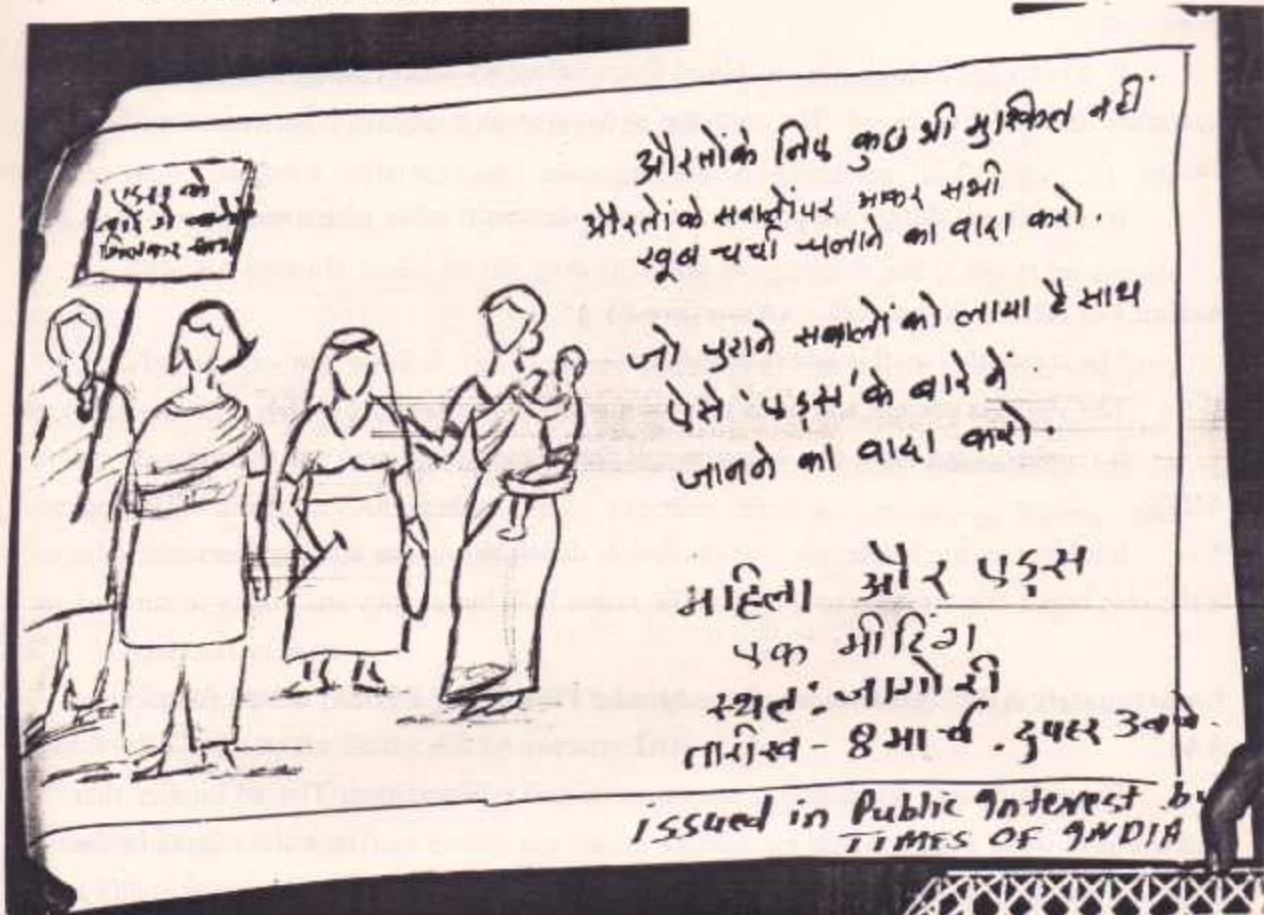 एड्स के
बारे में करो
मिलकर बात
औरतोंके लिए कुछ भी मुश्किल नहीं
औरतोंके सवालोंपर मकर सभी
खूब चर्चा चलाने का वादा करो.
जो पुराने सवालों को लाया है साथ
ऐसे 'एड्स' के बारे में
जानने का वादा करो
महिला और एड्स
एक मीटिंग
स्थल: जागोरी
तारीख - 8 मार्च . दुपहर 3 बजे.
issued in Public Interest by
TIMES OF INDIA